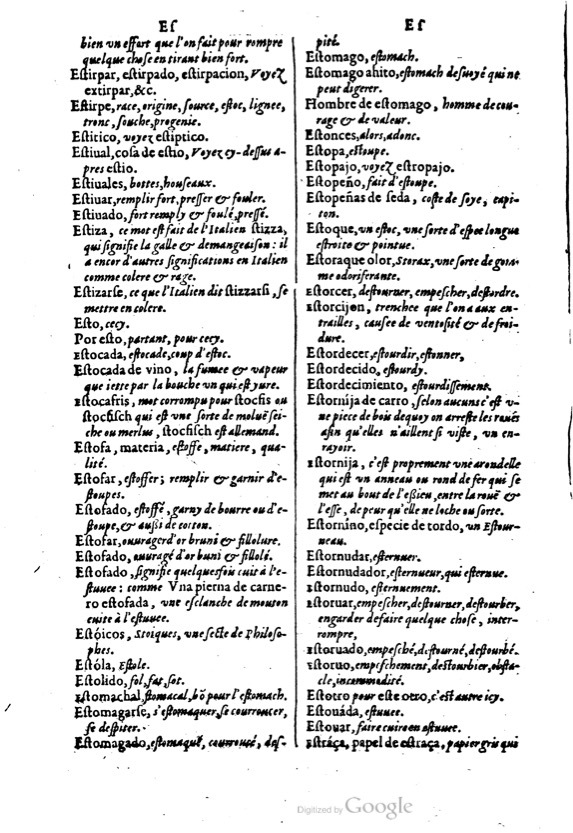 Es
bien un effort que l'on fait pour rompre
quelque chose en tirant bien fort.
Estirpar, estirpado, estirpacion, Voyez
extirpar, &c.
Estirpe, race, origine, source, estoc, lignee,
tronc, souche, progenie.
Estitico, voyez estiptico.
Estiual, cosa de estio, Voyez cy-dessus a-
pres estio.
Estiuales, bottes, houseaux.
Estiuar, remplir fort, presser & fouler.
Estiuado, fort remply & foulé, pressé.
Estiza, ce mot est fait de l'Italien stizza,
qui signifie la galle & demangeaison: il
a encor d'autres significations en Italien
comme colere & rage.
Estizarse, ce que l'Italien dit stizzarsi, se
mettre en colere.
Esto, cecy.
Por esto, partant, pour cecy.
Estocada, estocade, coup d'estoc.
Estocada de vino, la fumee & vapeur
que iette par la bouche un qui est yure.
Estocafris, mot corrompu pour stocfis ou
stocfisch qui est une sorte de moluë sei-
che ou merlus, stocfisch est allemand.
Estofa, materia, estoffe, matiere, qua-
lité.
Estofar, estoffer; remplir & garnir d'e-
stoupes.
Estofado, estoffé, garny de bourre ou d'e-
stoupe, & aussi de cotton.
Estofar, ouurager d'or bruni & fillolure.
Estofado, ouuragé d'or buni & fillolé.
Estofado, signifie quelquesfois cuit à l'e-
stuuee: comme Vna pierna de carne-
ro estofada, une esclanche de mouton
cuite à l'estuuee.
Estóicos, Stoiques, une secte de Philoso-
phes.
Estóla, Estole.
Estolido, fol, fat, sot.
Estomachal, stomacal, bõ pour l'estomach.
Estomagarse, s'estomaquer, se courroucer,
se despiter.
Estomagado, estomaqué, courroucé, des-
Es
pité.
Estomago, estomach.
Estomago ahito, estomach desuoyé qui ne
peut digerer.
Hombre de estomago, homme de cou-
rage & de valeur.
Estonces, alors, adonc.
Estopa, estoupe.
Estopajo, voyez estropajo.
Estopeño, fait d'estoupe.
Estopeñas de seda, coste de soye, capi-
ton.
Estoque, un estoc, une sorte d'espee longue
estroite & pointue.
Estoraque olor, Storax, une sorte de gom-
me odoriferante.
Estorcer, destourner, empescher, destordre.
Estorcijon, trenchee que l'on a aux en-
trailles, causee de ventosité & de froi-
dure.
Estordecer, estourdir, estonner,
Estordecido, estourdy.
Estordecimiento, estourdissement.
Estornija de carro, selon aucuns c'est v-
ne piece de bois dequoy on arreste les rouës
afin qu'elles n'aillent si viste, un en-
rayoir.
Estornija, c'est proprement une arondelle
qui est un anneau ou rond de fer qui se
met au bout de l'essieu, entre la rouë &
l'esse, de peur qu'elle ne loche ou sorte.
Estornino, especie de tordo, un Estour-
neau.
Estornudar, esternuer.
Estornudador, esternueur, qui esternue.
Estornudo, esternuement.
Estoruar, empescher, destourner, destourber,
engarder de faire quelque chose, inter-
rompre,
Estoruado, empesché, destourné, destourbé.
Estoruo, empeschement, destourbier, obsta-
cle, incommodité.
Estotro pour este otro, c'est autre icy.
Estouáda, estuuee.
Estouar, faire cuire en estuuee.
Estráça, papel de estraça, papier gris qui
Digitized by Google